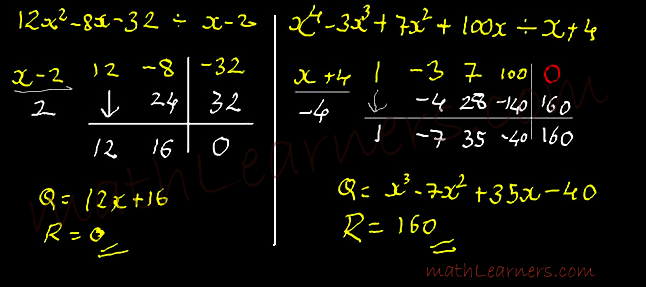 12x²-8x-32 ÷ x-2
x-2 12 -8 -32
2 ↓ 24 32
12 16 0
Q= 12x+16
R= 0
x⁴-3x³+7x²+100x÷x+4
x+4 1 -3 7 100 0
-4 ↓ -4 28 -140 160
1 -7 35 -40 160
Q= x³-7x²+35x-40
R= 160
mathLearners.com
mathLearners.com